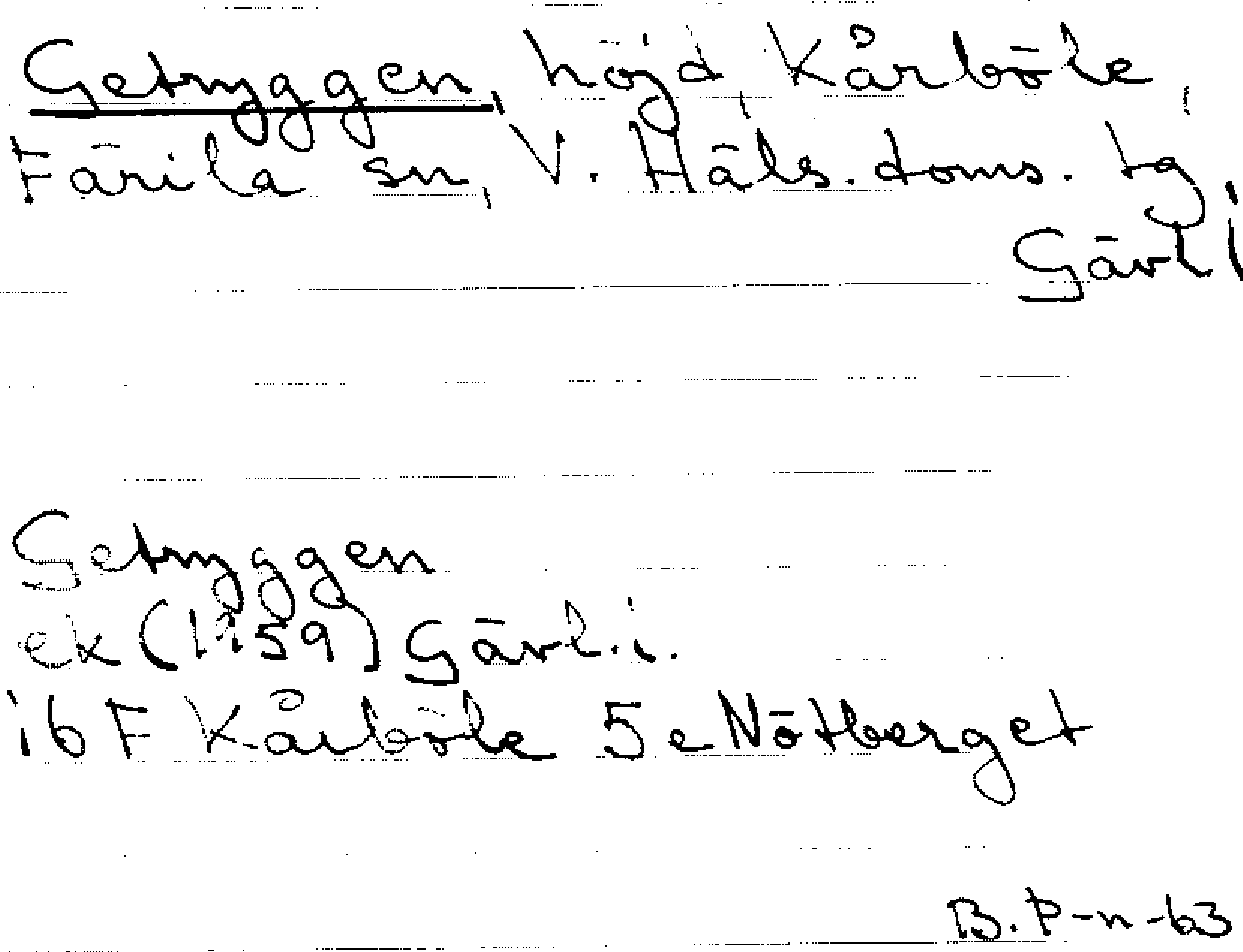 Getryggen, höjd, Kårböle,
Färila sn, V. Häls. doms. tg
Gävl l
Getryggen
ek (1959) Gävl. l.
16 F Kårböle 5 e Nötberget
B. P-n -63